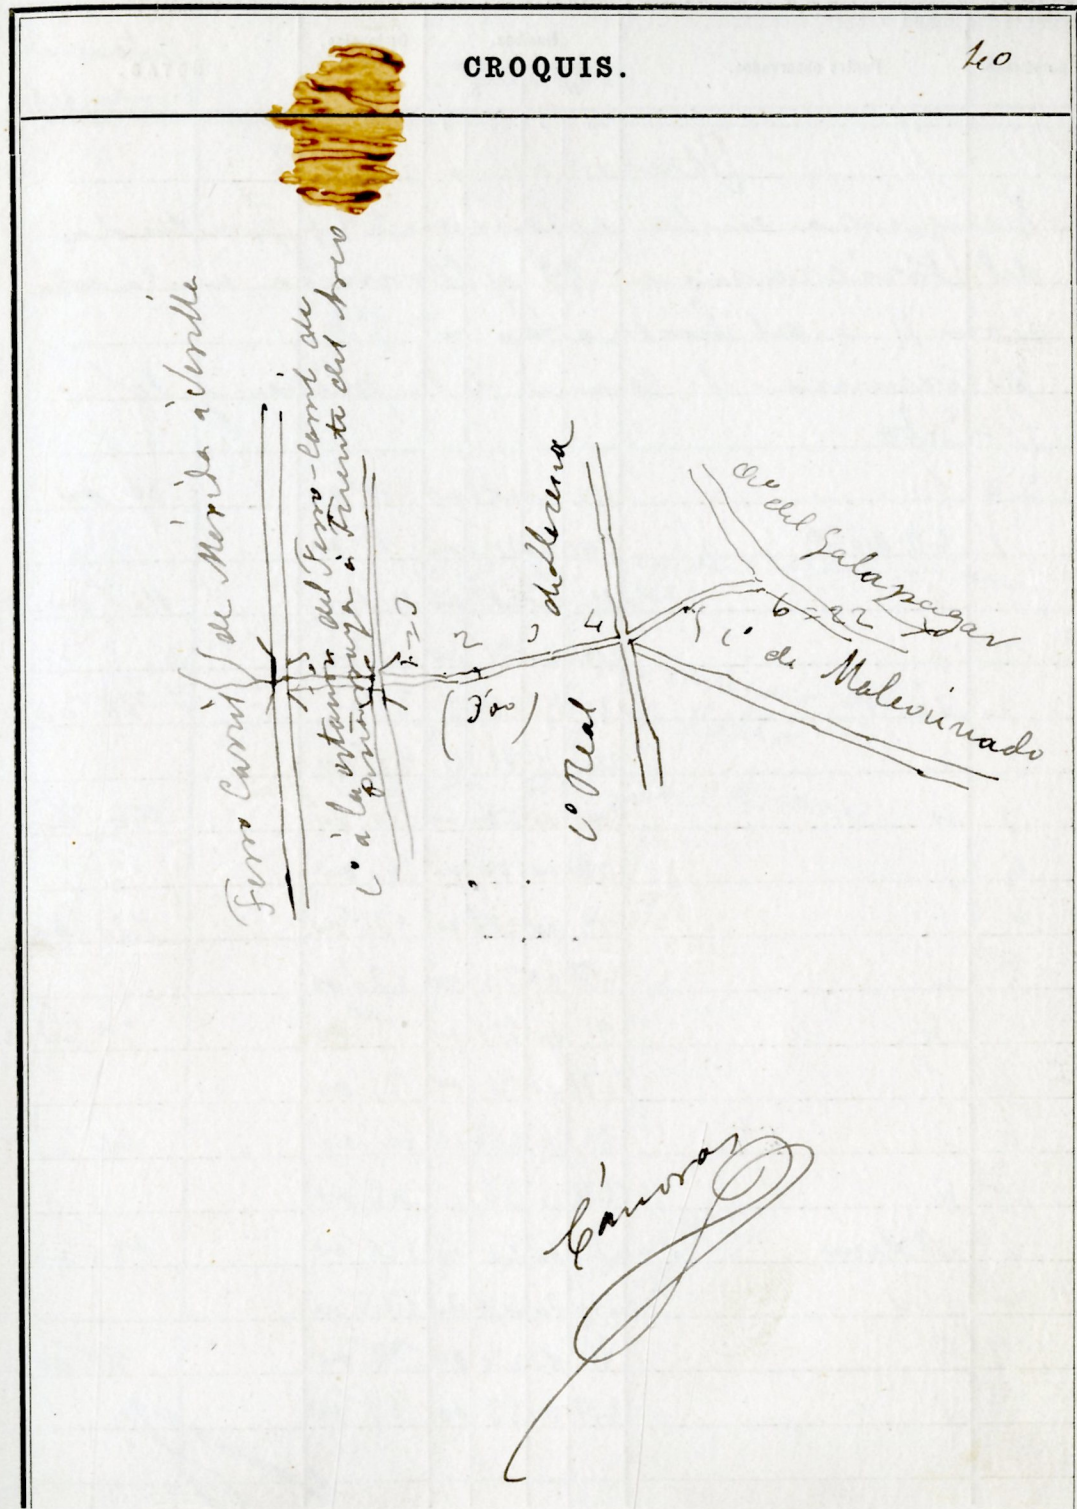 CROQUIS.
40
Ferro Carril de Mérida á Sevilla
Cº á la estación del Ferro-Carril de
Peñarroya á Fuente del Arco
1=3
2
3
4
5
6=22
(3'00)
Cº Real
de Llerena
Aº del Galapagar
Cº de Malcocinado
Cánovas